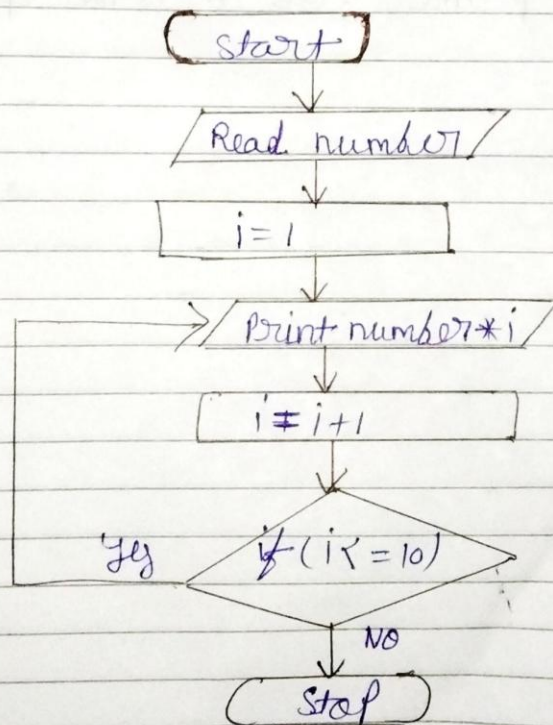 Start
Read number
i = 1
Print number * i
i = i + 1
if (i < = 10)
Yes
NO
Stop